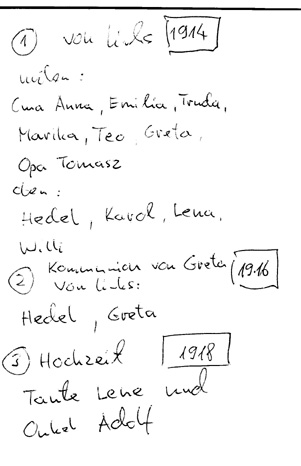 ① von links 1914
unten:
Oma Anna, Emilia, Truda,
Marika, Teo, Greta,
Opa Tomasz
oben:
Hedel, Karol, Lena,
Willi
② Kommunion von Greta 1916
von links:
Hedel, Greta
③ Hochzeit 1918
Tante Lene und
Onkel Adolf